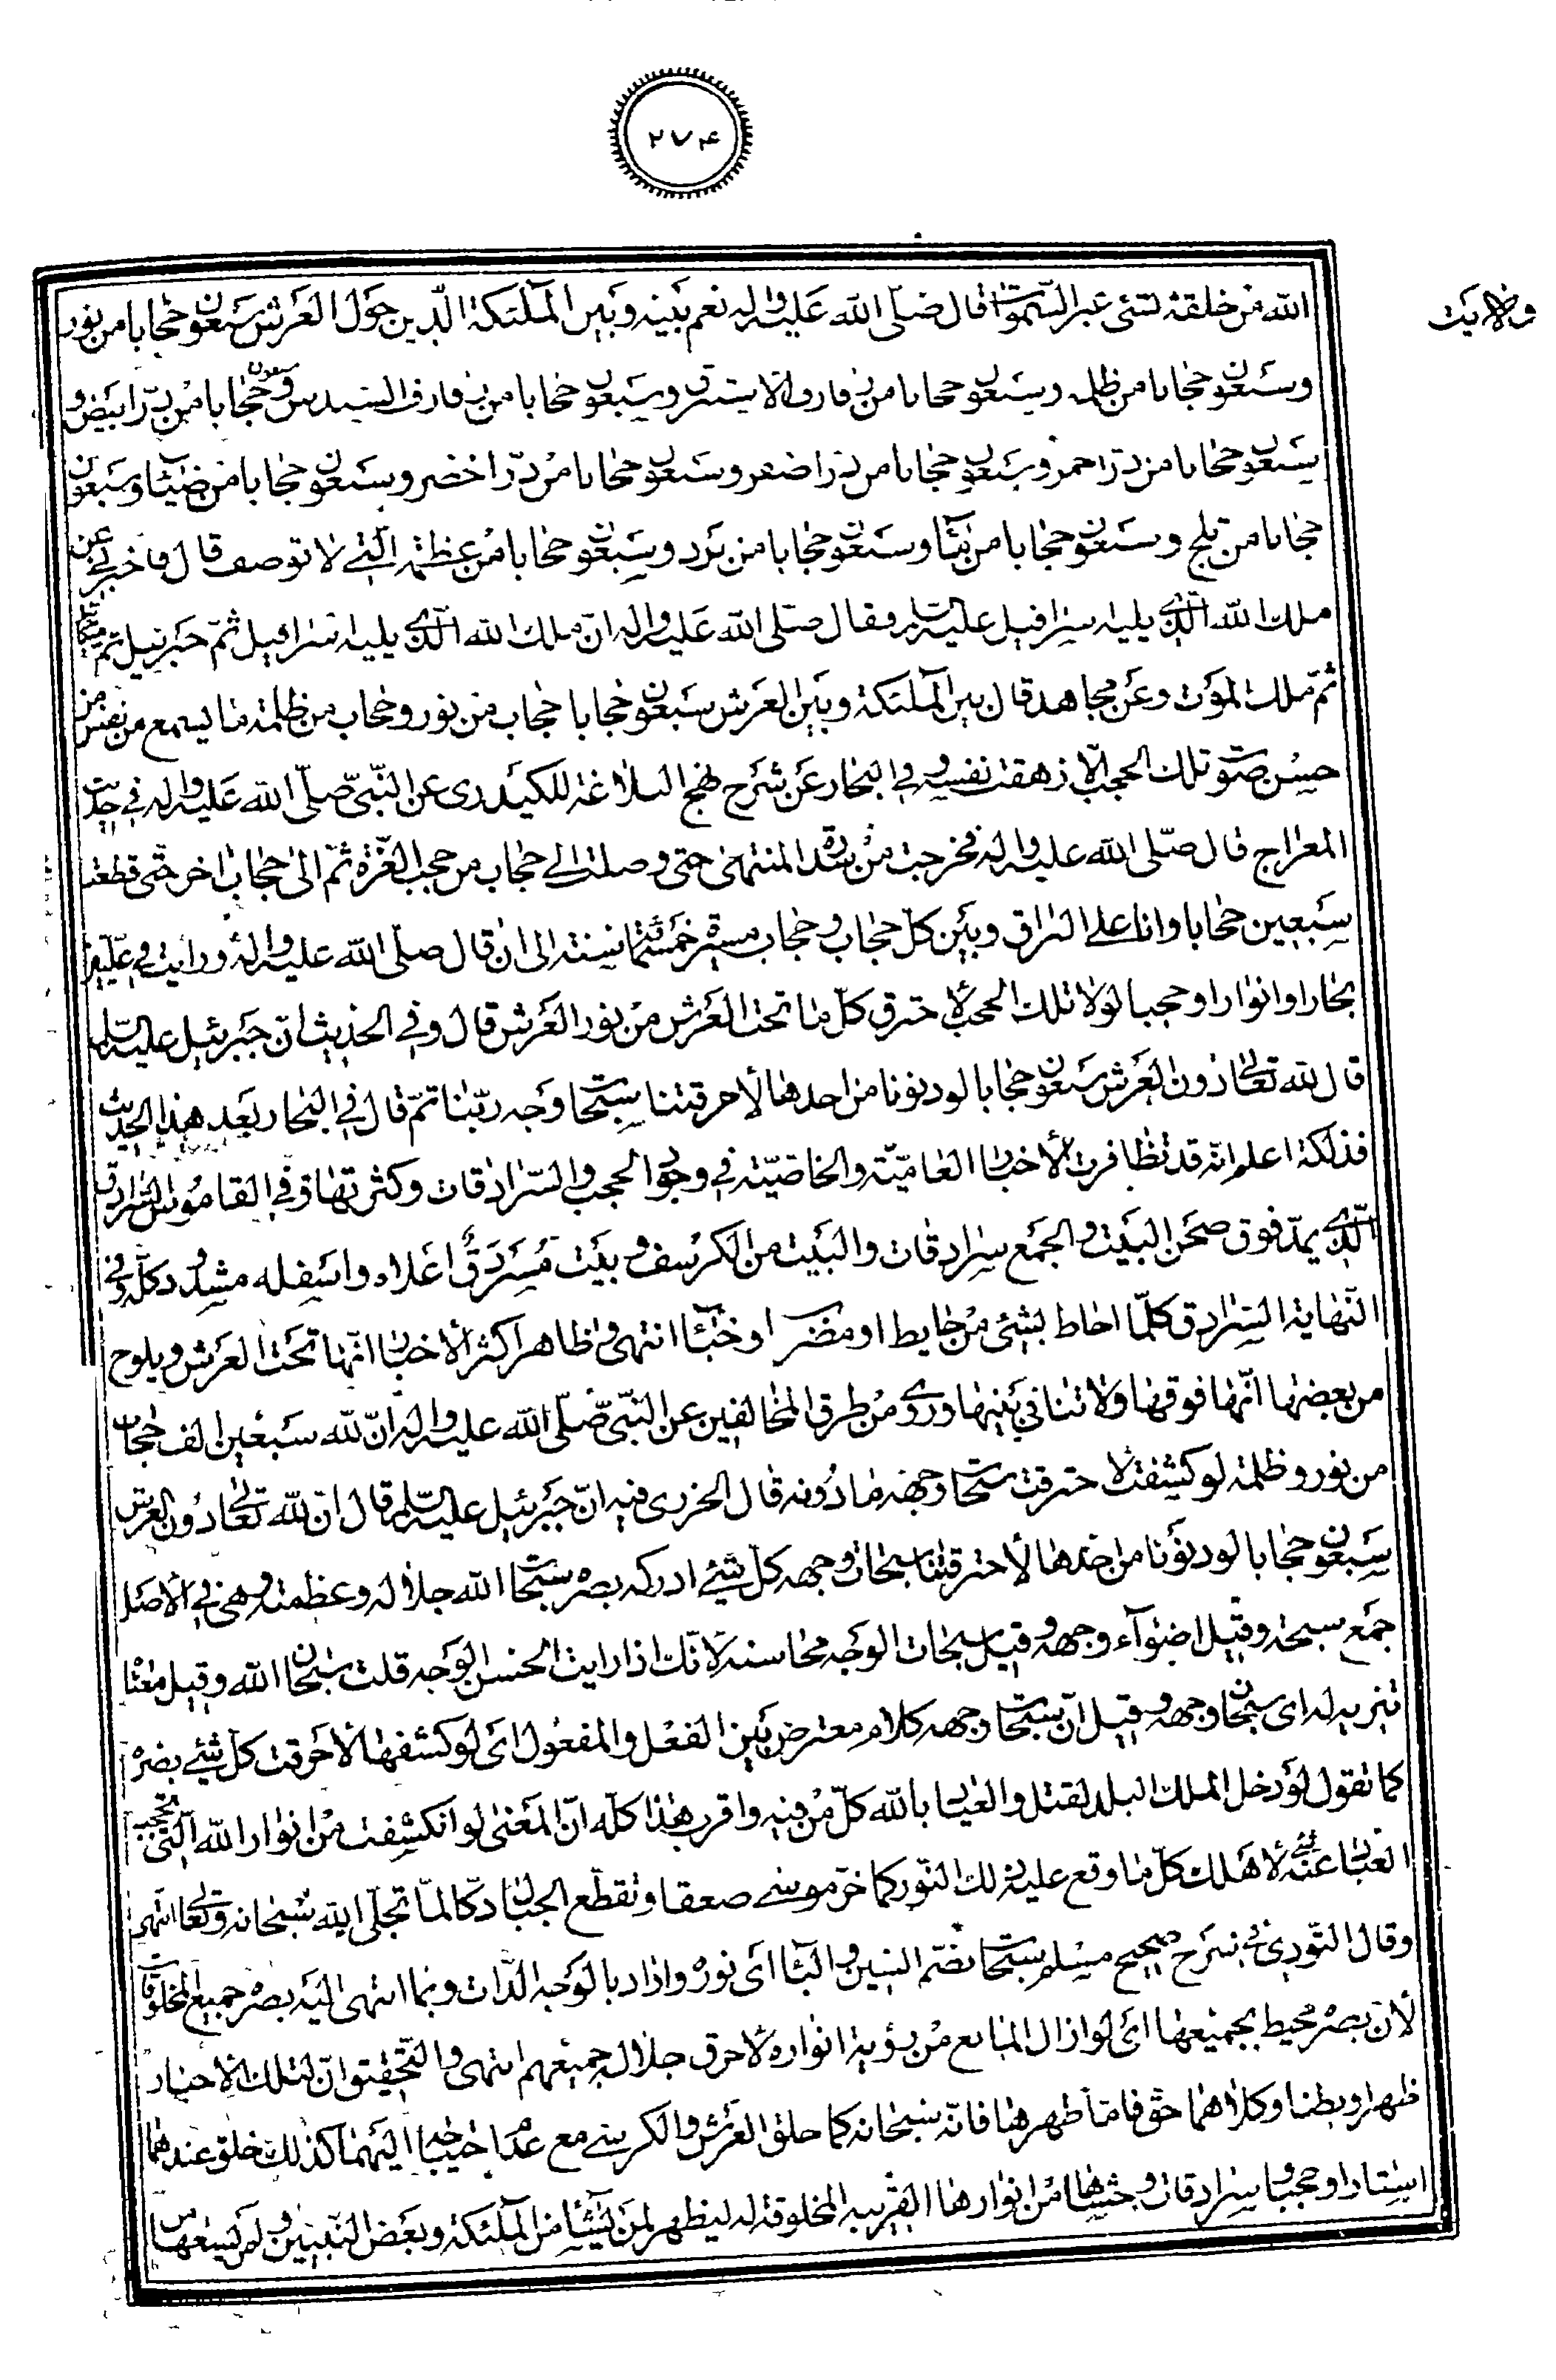 ۲۷۴
ولایت
الله من خلقه بشئ غير السموات قال صلّى الله عليه واله نعم بينه وبين الملئكة الّذين حول العرش سبعون حجابا من نور
وسبعون حجابا من ظلمه وسبعون حجابا من رفارف الاستبرق وسبعون حجابا من رفارف السندس وسبعون حجابا من درّ ابيض و
سبعون حجابا من درّ احمر وسبعون حجابا من درّ اصفر وسبعون حجابا من درّ اخضر وسبعون حجابا من ضياء وسبعون
حجابا من ثلج وسبعون حجابا من ماء وسبعون حجابا من برد وسبعون حجابا من عظمة الله الّتي لا توصف قال فاخبرني عن
ملك الله الّذي يليه اسرافيل عليه السلام فقال صلّى الله عليه واله انّ ملك الله الّذي يليه اسرافيل ثمّ جبرئيل ثمّ ميكائيل
ثمّ ملك الموت وعن مجاهد قال بين الملئكة وبين العرش سبعون حجابا حجاب من نور وحجاب من ظلمة ما يسمع من نفس من
حسن صوت تلك الحجب الّا زهقت نفسه وفي البحار عن شرح نهج البلاغة للكيدرى عن النّبىّ صلّى الله عليه واله في حديث
المعراج قال صلّى الله عليه واله فخرجت من سدرة المنتهى حتى وصلت الى حجاب من حجب العزّة ثمّ الى حجاب اخر حتّى قطعت
سبعين حجابا وانا على البراق وبين كلّ حجاب وحجاب مسيرة خمسمائة سنة الى ان قال صلّى الله عليه واله ورايت في علّيين
بحارا وانوارا وحجبا لولا تلك الحجب لاحترق كلّ ما تحت العرش من نور العرش قال وفي الحديث انّ جبرئيل عليه السلام
قال لله تعالى دون العرش سبعون حجابا لو دنونا من احدها لأحرقتنا سبحات وجه ربّنا ثمّ قال في البحار بعد هذا الحديث
فذلكة اعلم انّه قد تظافرت الأخبار العاميّة والخاصّيّة في وجود الحجب والسّرادقات وكثرتها وفي القاموس السّرادق
الّذي يمدّ فوق صحن البيت والجمع سرادقات والبيت من الكرسف وبيت مسردق اعلاه واسفله مشدود كلّه وفي
النّهاية السّرادق كلّما احاط بشئ من حايط او مضرب او خباء انتهى وظاهر اكثر الأخبار انّها تحت العرش ويلوح
من بعضها انّها فوقها ولا تنافي بينها وروي من طرق المخالفين عن النّبىّ صلّى الله عليه واله انّ لله سبعين الف حجاب
من نور وظلمة لو كشفت لاحترقت سبحات وجهه ما دونه قال الجزرى فيه انّ جبرئيل عليه السّلم قال انّ لله تعالى دون العرش
سبعون حجابا لو دنونا من احدها لأحترقتنا سبحات وجهه كلّ شئ ادركه بصره سبحات الله جلاله وعظمته وهى في الأصل
جمع سبحة وقيل اضواء وجهه وقيل سبحات الوجه محاسنه لأنّك اذا رايت الحسن الوجه قلت سبحان الله وقيل معناه
تنزيه له اى سبحان وجهه وقيل انّ سبحات وجهه كلام معترض بين الفعل والمفعول اى لو كشفها لأحرقت كلّ شئ بصره
كما تقول لو دخل الملك البلد لقتل والعياذ بالله كلّ من فيه واقرب هذا كلّه انّ المعنى لو انكشفت من انوار الله الّتي تحجب
العباد عنه شئ لأهلك كلّ ما وقع عليه ذلك النّور كما خرّ موسى صعقا وتقطّع الجبل دكّا لمّا تجلّى الله سبحانه وتعالى انتهى
وقال النّووى في شرح صحيح مسلم سبحات بضمّ السين والباء اى نوره واراد بالوجه الذّات وبما انتهى اليه بصره جميع المخلوقات
لأنّ بصره محيط بجميعها اى لو ازال المانع من رؤية انواره لأحرق جلاله جميعهم انتهى والتّحقيق انّ لتلك الأخبار
ظهرا وبطنا وكلاهما حقّ فامّا ظهرها فانّه سبحانه كما خلق العرش والكرسي مع عدم احتياجه اليهما كذلك خلق عندهما
استارا وحجبا وسرادقات وحشاها من انوارها الغريبه المخلوقة له ليظهر لمن يشاء من الملئكة وبعض النّبيين ولمن يسمعها من